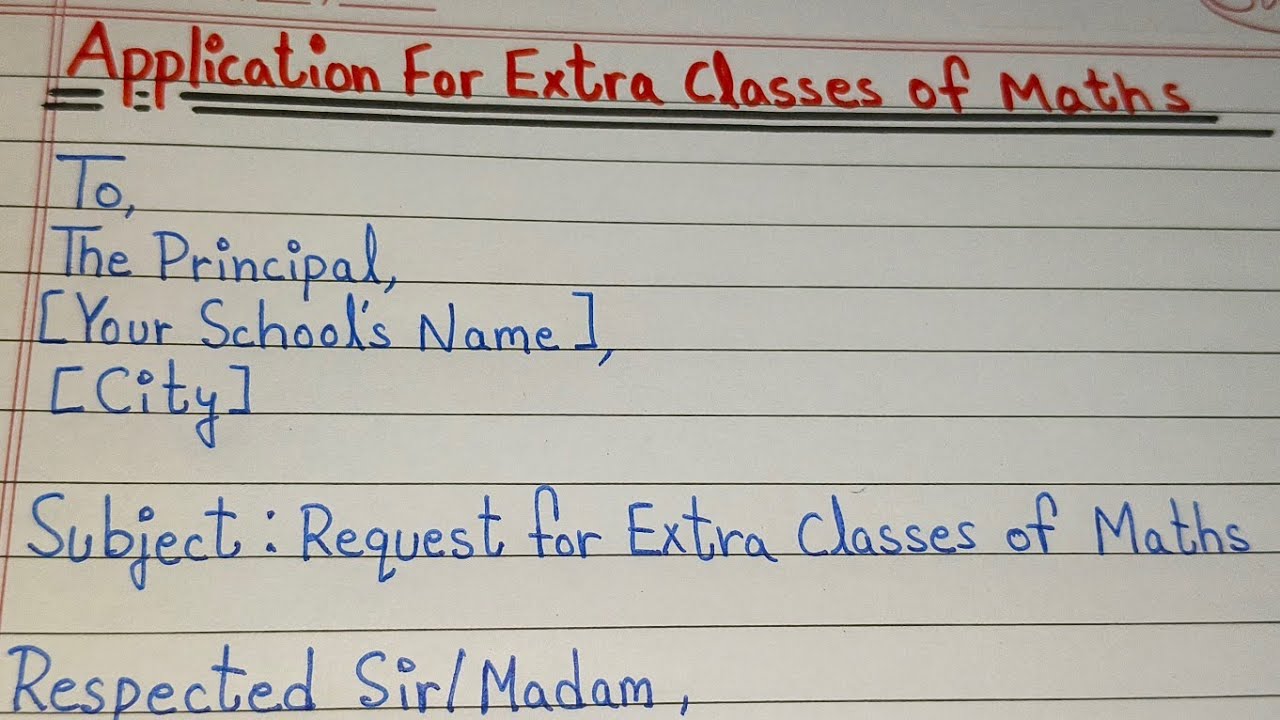 Application For Extra Classes of Maths
To,
The Principal,
[Your School's Name],
[City]
Subject: Request for Extra Classes of Maths
Respected Sir/Madam,